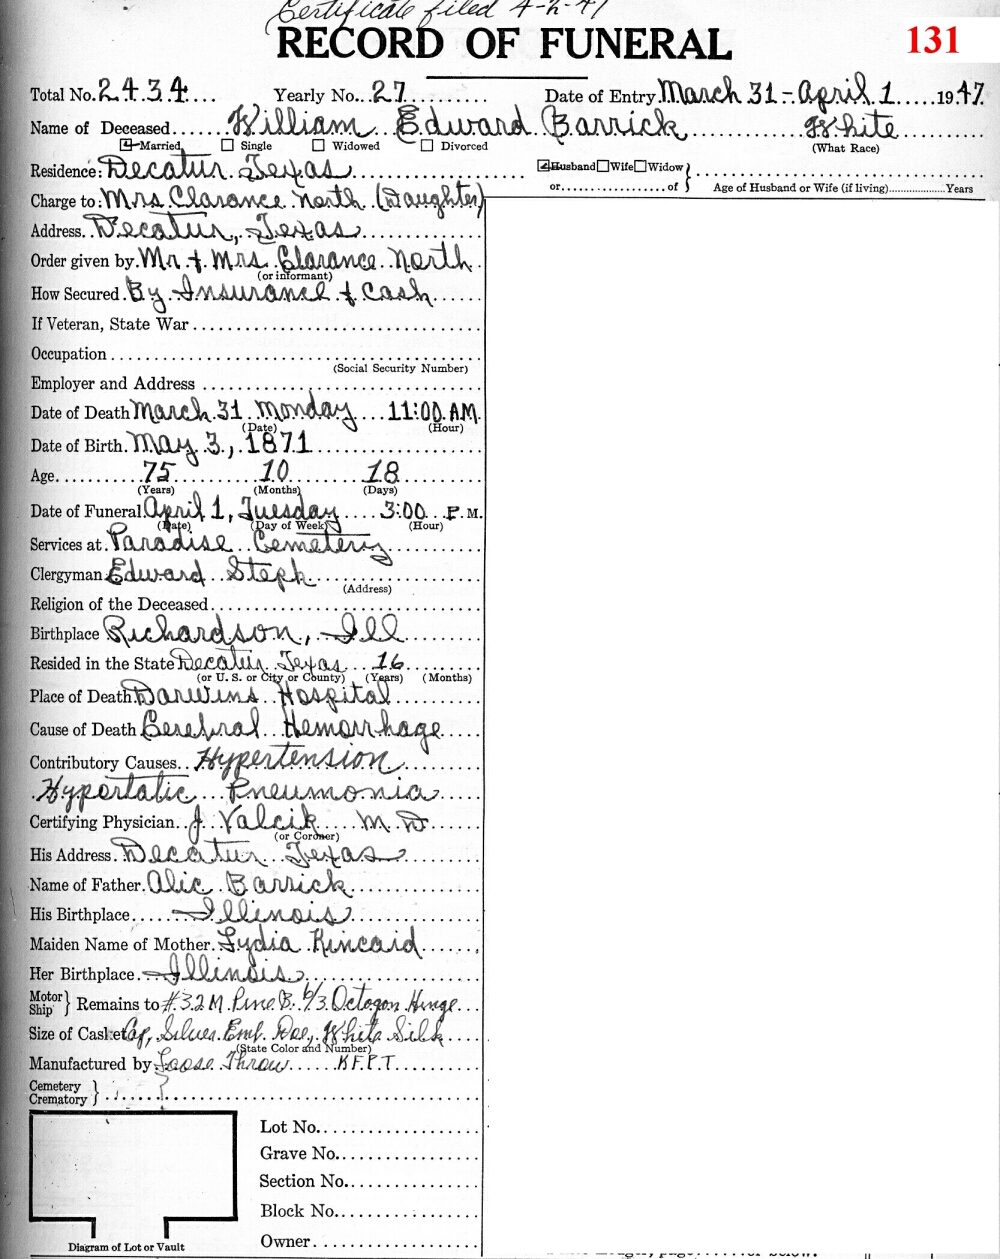 Certificate filed 4-2-47
RECORD OF FUNERAL 131
Total No. 2434 Yearly No. 27 Date of Entry March 31 - April 1 1947
Name of Deceased William Edward Barrick White
Married Single Widowed Divorced (What Race)
Residence: Decatur Texas Husband Wife Widow
or of Age of Husband or Wife (if living) Years
Charge to: Mrs. Clarance North (Daughter)
Address. Decatur, Texas
Order given by. Mr. & Mrs. Clarance North
(or informant)
How Secured. By Insurance & Cash
If Veteran, State War
Occupation
(Social Security Number)
Employer and Address
Date of Death March 31 Monday 11:00 A.M.
(Date) (Hour)
Date of Birth. May 3, 1871
Age 75 10 18
(Years) (Months) (Days)
Date of Funeral April 1, Tuesday 3:00 P.M.
(Date) (Day of Week) (Hour)
Services at. Paradise Cemetery
Clergyman Edward Steph
(Address)
Religion of the Deceased
Birthplace Richardson, Ill
Resided in the State Decatur Texas 16
(or U. S. or City or County) (Years) (Months)
Place of Death Darwins Hospital
Cause of Death Cerebral Hemorrhage
Contributory Causes Hypertension
Hypertatic Pneumonia
Certifying Physician J. Valcik M.D.
(or Coroner)
His Address. Decatur Texas
Name of Father. Alic Barrick
His Birthplace Illinois
Maiden Name of Mother. Lydia Kincaid
Her Birthplace Illinois
Motor
Ship } Remains to #32 M. Pine B. 6/3 Octogon Hinge
Size of Casket Silver Emb. White Silk
(State Color and Number)
Manufactured by Loose Throw K.F.P.T.
Cemetery
Crematory }
Lot No.
Grave No.
Section No.
Block No.
Owner
Diagram of Lot or Vault